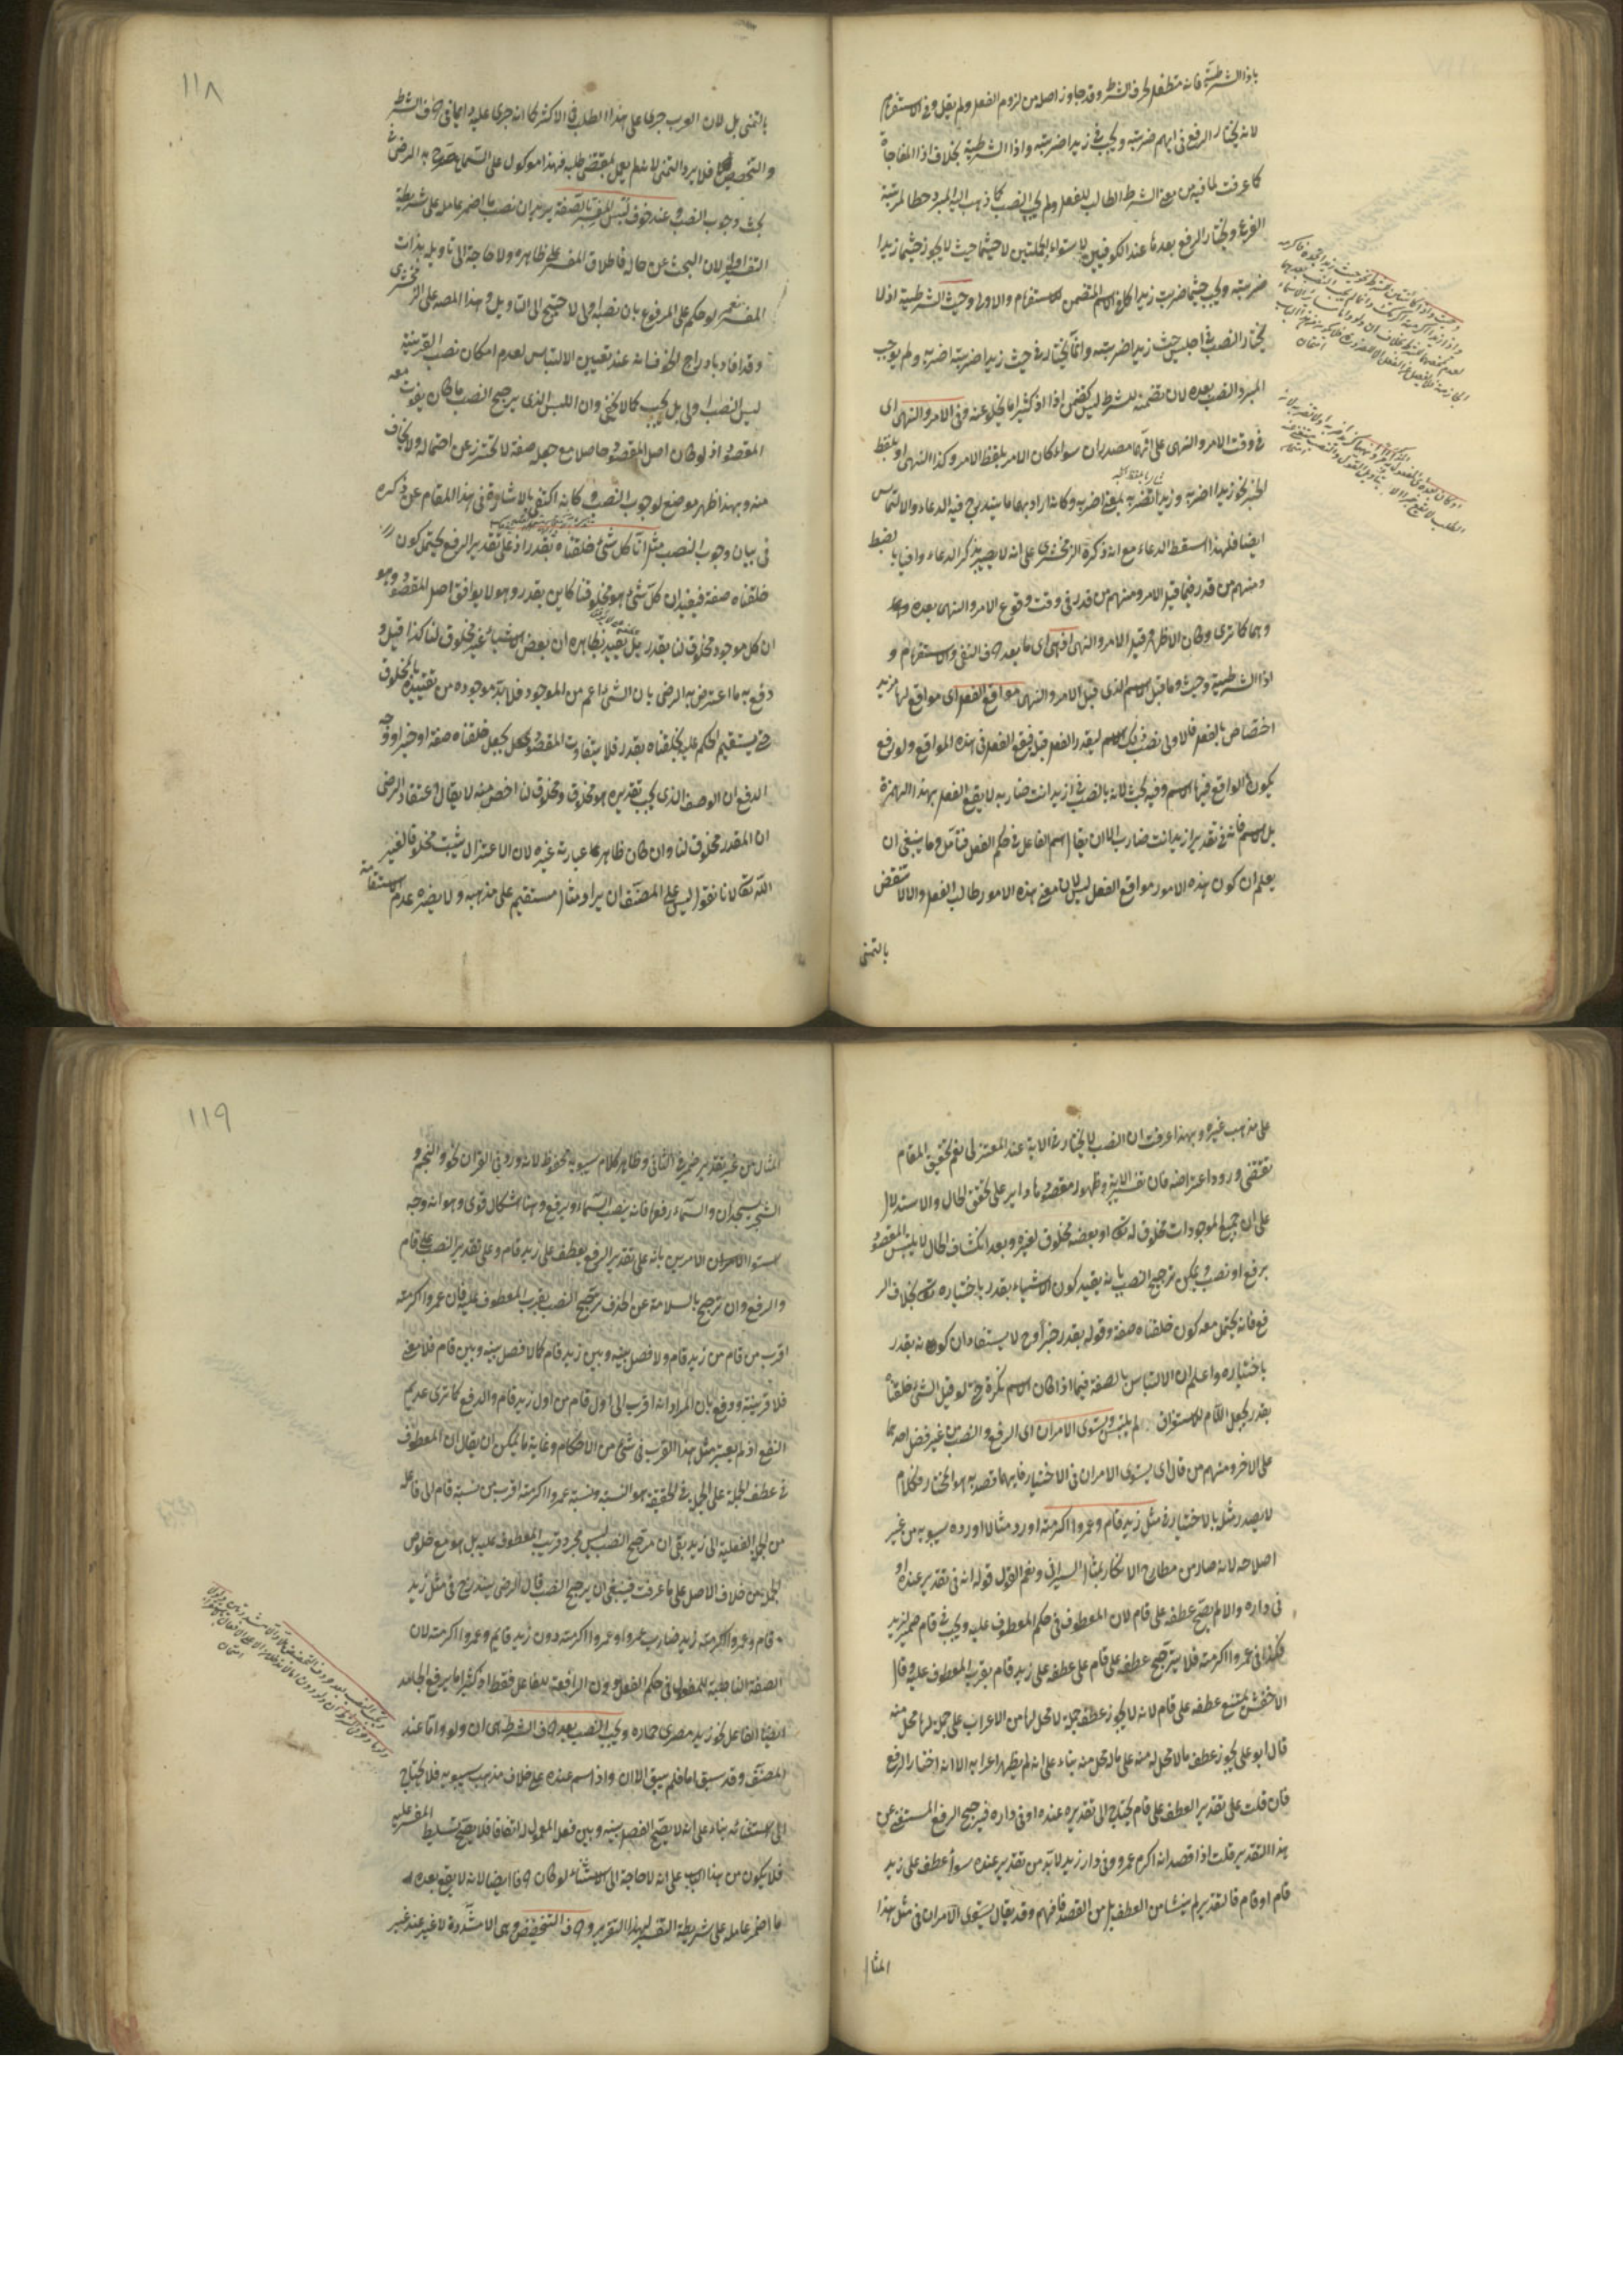 باذا الشرطية فانه متطفل لحرف الشرط وقد جاوز اصله من لزوم الفعل ولم يقل وفي الاستفهام
لانه يختار الرفع في ايهم ضربته ويجب في زيدا ضربته واذا الشرطية بخلاف اذا المفاجاة
كما عرفت لما فيه من معنى الشرط الطالب للفعل ولم يجب النصب كما ذهب اليه المبرد حطا لمرتبة
الفرع ويختار الرفع بعدها عند الكوفيين لاستواء الجملتين لا حيثما حيث لا يجوز حيثما زيدا
ضربته ويجب حيثما ضربت زيدا كما في الاسم المتضمن للاستفهام والاولى وحيث الشرطية اذ لا
يختار النصب في اجلس حيث زيدا ضربته وانما يختار في حيث زيدا ضربته اضربه ولم يوجب
المبرد النصب بعده لان تضمنه للشرط ليس كتضمن اذا اذ كثيرا ما يخلو عنه وفي الامر والنهي اى
في وقت الامر والنهي على انهما مصدران سواء كان الامر بلفظ الامر وكذا النهي او بلفظ
الخبر نحو زيدا اضربه وزيدا تضربه بمعنى اضربه وكانه اراد بهما ما يندرج فيه الدعاء والالتماس
ايضا فلهذا اسقط الدعاء مع انه ذكره الزمخشرى على انه لا يصير بذكر الدعاء وافيا بالضبط
ومنهم من قدر فيما قبل الامر ومنهم من قدر في وقت وقوع الامر والنهي بعده
وهما كما ترى وكان الاظهر وقبل الامر والنهي اذ هي اى ما بعد حرف النفي والاستفهام و
اذا الشرطية وحيث وما قبل الاسم الذى قبل الامر والنهي مواقع الفعل اى مواقع لها مزيد
اختصاص بالفعل فالاولى نصب ذلك الاسم ليقدر الفعل قبل فيقع الفعل في هذه المواقع ولو رفع
يكون الواقع فيها الاسم وفيه بحث لانه بالنصب في ازيدا انت ضاربه لا يقع الفعل بهذا الهمزة
بل الاسم فانه في تقدير ازيدا انت ضارب الا ان يقال اسم الفاعل في حكم الفعل فتأمل وما ينبغي ان
يعلم ان كون هذه الامور مواقع الفعل ليس لان معنى هذه الامور طالب الفعل والا لانتقض
بالتمنى
١١٨
بالتمنى بل لان العرب جرى على هذا الطلب في الاكثر كما انه جرى عليه دائما في حرف الشرط
والتحضيض فلا يرد التمنى لانه لم يعمل بمقتضى طلبه فهذا موكول على السماع صرح به الرضى
بحث وجوب النصب وعند خوف لبس المفسر بالصفة يريد ان نصب ما اضمر عامله على شريطة
التفسير اولى لان البحث عن حاله فاطلاق المفسر على ظاهره ولا حاجة الى تاويله بذات
المفسر نعم لو حكم على المرفوع بان نصبه اولى لاحتيج الى التاويل وهذا المصه على الزمخشرى
وقد افاد بادراج الخوف انه عند تعيين الالتباس لعدم امكان نصب القرينة
ليس النصب اولى بل يجب كما لا يخفى وان اللبس الذى يرجح النصب ما كان يفوت معه
المقصود اذ لو كان اصل المقصود حاصلا مع جعله صفة لا تحترز عن احتماله ولا يخاف
منه وبهذا ظهر موضع لوجوب النصب كانه اكتفى بالاشارة في هذا المقام عن ذكره
في بيان وجوب النصب مثل انا كل شئ خلقناه بقدر اذ على تقدير الرفع يحتمل كون
خلقناه صفة فيفيد ان كل شئ هو مخلوقنا كاين بقدر وهو لا يوافق اصل المقصود وهو
ان كل موجود مخلوق لنا بقدر بل يفيد بظاهره ان بعض الاشياء غير مخلوق لنا كذا قيل و
دفع به ما اعترض به الرضى بان الشئ اعم من الموجود فلا بد موجوده من تقييده بالمخلوق
حتى يستقيم الحكم عليه بخلقناه بقدر فلا يتفاوت المقصود بجعل خلقناه صفة او خبرا ووجه
الدفع ان الوصف الذى يجب تقديره هو مخلوق ومخلوق لنا اخص منه لا يقال اعتقاد الرضى
ان المقدر مخلوق لنا وان كان ظاهر عبارته غيره لان الاعتزال يثبت مخلوقا لغير
الله تعالى لانا نقول ليس على المصنف ان يراد مثالا مستقيم على مذهبه ولا يضره عدم الاستقامة
على مذهب غيره وبهذا عرفت ان النصب لا يختار في الاية عند المعتزلى نعم تحقيق المقام
تقتضى ورود اعتراضه فان تفسير الاية وظهور مقصودها داير على تحقق الحال والاستدلال
على ان جميع الموجودات مخلوق له تعالى او بعضه مخلوق لغيره وبعد انكشاف الحال لا يلتبس المقصود
برفع او نصب ويمكن ترجيح النصب بانه يفيد كون الاشياء بقدر باختياره تعالى بخلاف الر
فع فانه يحتمل معه كون خلقناه صفة وقوله بقدر خبرا وح لا يستفاد ان كونه بقدر
باختياره واعلم ان الالتباس بالصفة فيما اذا كان الاسم نكرة حتى لو قيل الشئ خلقناه
بقدر بجعل اللام للاستغراق لم يلتبس ويستوى الامران اى الرفع والنصب من غير فضل احدهما
على الاخر ومنهم من قال اى يستوى الامران في الاختيار فايهما قصد به هو المختار فكلام
لا يصدر مثله بالاختيار في مثل زيد قام وعمروا اكرمته اورد مثالا اورده سيبويه من غير
اصلاحه لانه صار من مطارح الانكار لمثل السيرافى ونعم القول قوله انه في تقدير عنده او
في داره والا لم يصح عطفه على قام لان المعطوف في حكم المعطوف عليه ويجب في قام ضمير لزيد
فكذا في عمروا اكرمته فلا يترجح عطفه على قام على عطفه على زيد قام بقرب المعطوف عليه وقال
الاخفش يمتنع عطفه على قام لانه لا يجوز عطف جملة لا محل لها من الاعراب على جملة لها محل منه
قال ابو على يجوز عطف ما لا محل له منه على ما له محل منه بناء على انه لم يظهر اعرابه الا انه اختار الرفع
فان قلت على تقدير العطف على قام يحتاج الى تقدير عنده او في داره فيرجح الرفع المستغنى عن
هذا التقدير قلت اذا قصد انه اكرم عمرو وفي دار زيد لا بد من تقدير عنده سواء عطف على زيد
قام او قام فالتقدير لم ينشا من العطف بل من القصد فافهم وقد يقال يستوى الامران في مثل هذا
المثال
١١٩
المثال من غير تقدير ضمير في الثانى وظاهر كلام سيبويه محفوظ لانه ورد في القران نحو والنجم و
الشجر يسجدان والسماء رفعها فانه ينصب السماء ويرفع وهنا اشكال قوى وهو انه وجه
استواء الامرين بانه على تقدير الرفع يعطف على زيد قام وعلى تقدير النصب على قام
والرفع وان ترجح بالسلامة عن الحذف ترجح النصب بقرب المعطوف عليه فان عمروا اكرمته
اقرب من قام من زيد قام ولا فصل بينه وبين زيد قام كما لا فصل بينه وبين قام فلا معنى
فلا قرينة ودفع بان المراد انه اقرب الى اول قام من اول زيد قام والدفع كما ترى عديم
النفع اذ لم يعتبر مثل هذا القرب في شئ من الاحكام وغاية ما يمكن ان يقال ان المعطوف
في عطف الجملة على الجملة في الحقيقة هو النسبة ونسبة عمروا اكرمته اقرب من نسبة قام الى فاعله
من الجملة الفعلية الى زيد بقى ان مرجح النصب ليس مجرد قرب المعطوف عليه بل هو مع خلوص
الجملة من خلاف الاصل على ما عرفت فينبغي ان يرجح النصب قال الرضى يندرج في مثل زيد
قام وعمروا اكرمته زيد ضارب عمروا وعمروا اكرمته دون زيد قايم وعمروا اكرمته لان
الصفة الناصبة للمفعول في حكم الفعل دون الرافعة للفاعل فقط اذ كثيرا ما يرفع الجامد
ايضا الفاعل نحو زيد مصرى حماره ويجب النصب بعد حرف الشرط هى ان ولو واما عند
المصنف وقد سبق اما فلم يبق الا ان واذ اسم عنده على خلاف مذهب سيبويه فلا يحتاج
الى استثنائه بناء على انه لا يصح الفصل بينه وبين فعل المعمول اتفاقا فلا يصح تسليط المفسر عليه
فلا يكون من هذا الباب على انه لا حاجة الى الاستثناء لو كان حرفا ايضا لانه لا يقع بعده
ما اضمر عامله على شريطة التفسير لهذا التقرير وحرف التحضيض وهى الا مشددة لا غير عند غير